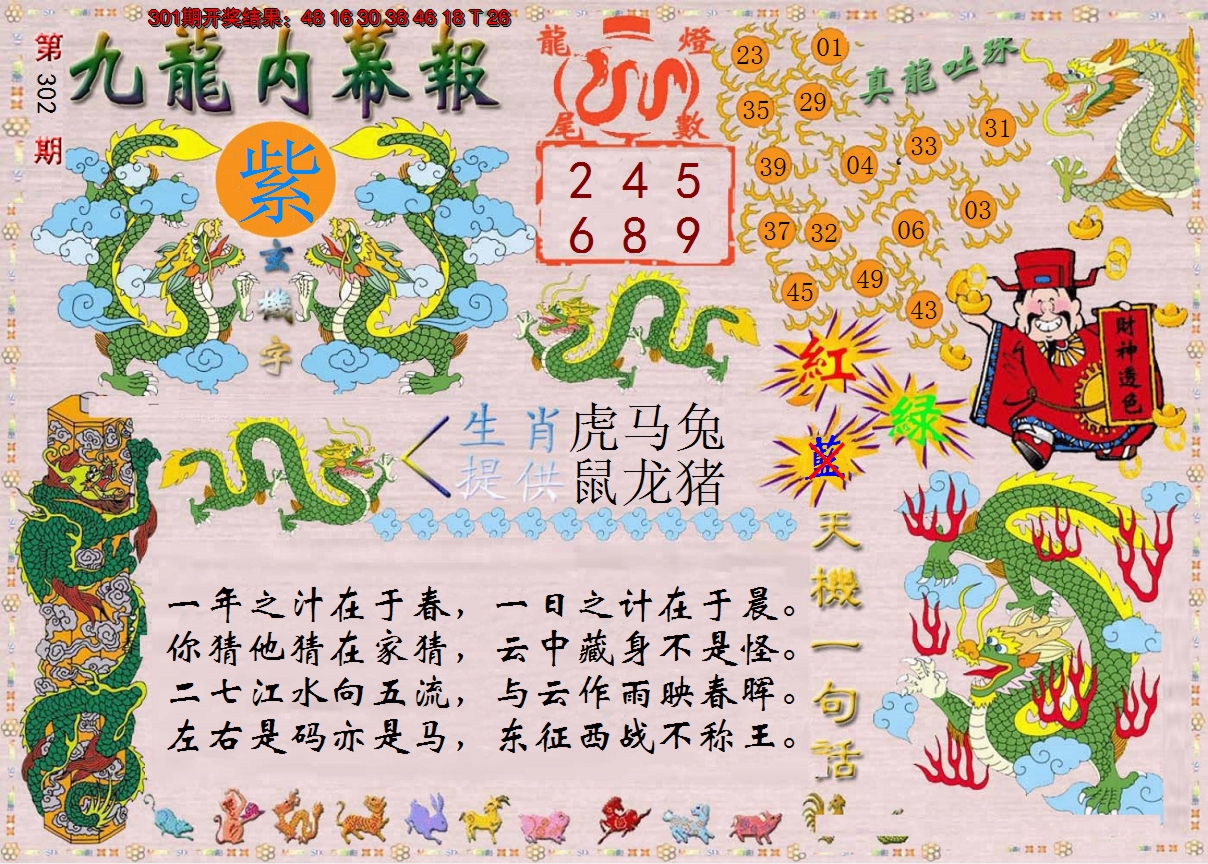 301期开奖结果：48 16 30 38 46 18 T 26
第302期
九龍内幕報
紫
玄機字
龍燈
尾數
2 4 5
6 8 9
真龍吐珠
23 01
35 29
39 04 33 31
37 32 06 03
45 49 43
紅
綠
藍
財神透色
生肖 虎马兔
提供 鼠龙猪
天機一句话
一年之汁在于春，一日之计在于晨。
你猜他猜在家猜，云中藏身不是怪。
二七江水向五流，与云作雨映春晖。
左右是码亦是马，东征西战不称王。